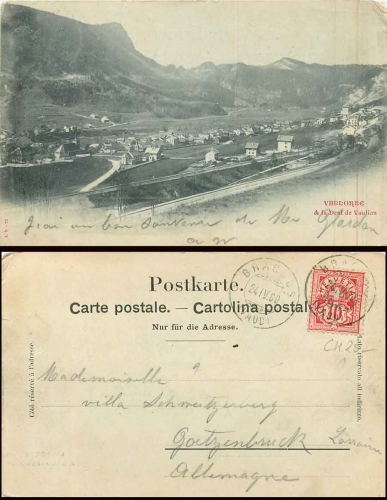 VALLORBE
& la Dent de Vaulion
J'ai un bon souvenir de Me
Postkarte.
Carte postale. — Cartolina postale
Nur für die Adresse.
Côté réservé à l'adresse.
Lato riservato all'indirizzo.
HELVETIA
10
24.IV.00
(VAUD)
CH 25-
Mademoiselle
villa Schweitzerberg
Goetzenbruck Lorraine
Allemagne